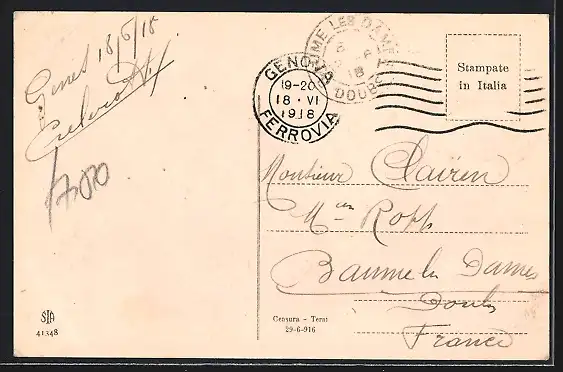 Genes 18/6/18
1700
GENOVA
19-20
18 · VI
1918
FERROVIA
BAUME LES DAMES
6
18
DOUBS
Stampate
in Italia
Monsieur Clairen
Mon Ropp
Baume les Dames
Doubs
France
Censura - Terni
29-6-916
STA
41348